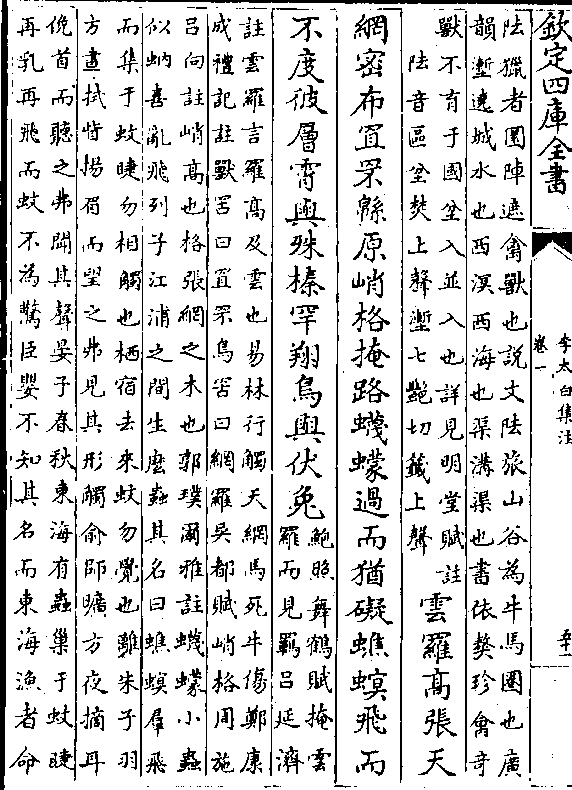 欽定四庫全書
李太白集注
卷一
至
阹獵者圍陣遮禽獸也説文阹依山谷為牛馬圈也廣
韻塹遶城水也西溟西海也渠溝渠也書依獒珍禽奇
獸不育于國坌入並入也詳見明堂賦註
阹音區坌焚上聲塹七艷切籖上聲
雲羅髙張天
網宻布罝罘緜原峭格掩路蠛蠓過而猶礙蟭螟飛而
不度彼層霄與殊榛罕翔鳥與伏兔
鮑照舞鶴賦掩雲
羅而見羈吕延濟
註雲羅言羅髙及雲也易林行觸天網馬死牛傷鄭康
成禮記註獸罟曰罝罘鳥罟曰網羅吳都賦峭格周施
吕向註峭髙也格張網之木也郭璞爾雅註蠛蠓小蟲
似蚋喜亂飛列子江浦之間生麽蟲其名曰蟭螟羣飛
而集于蚊睫勿相觸也栖宿去來蚊勿覺也離朱子羽
方晝拭眥揚眉而望之弗見其形觸俞師曠方夜摘耳
俛首而聽之弗聞其聲晏子春秋東海有蟲巢于蚊睫
再乳再飛而蚊不為驚臣嬰不知其名而東海漁者命